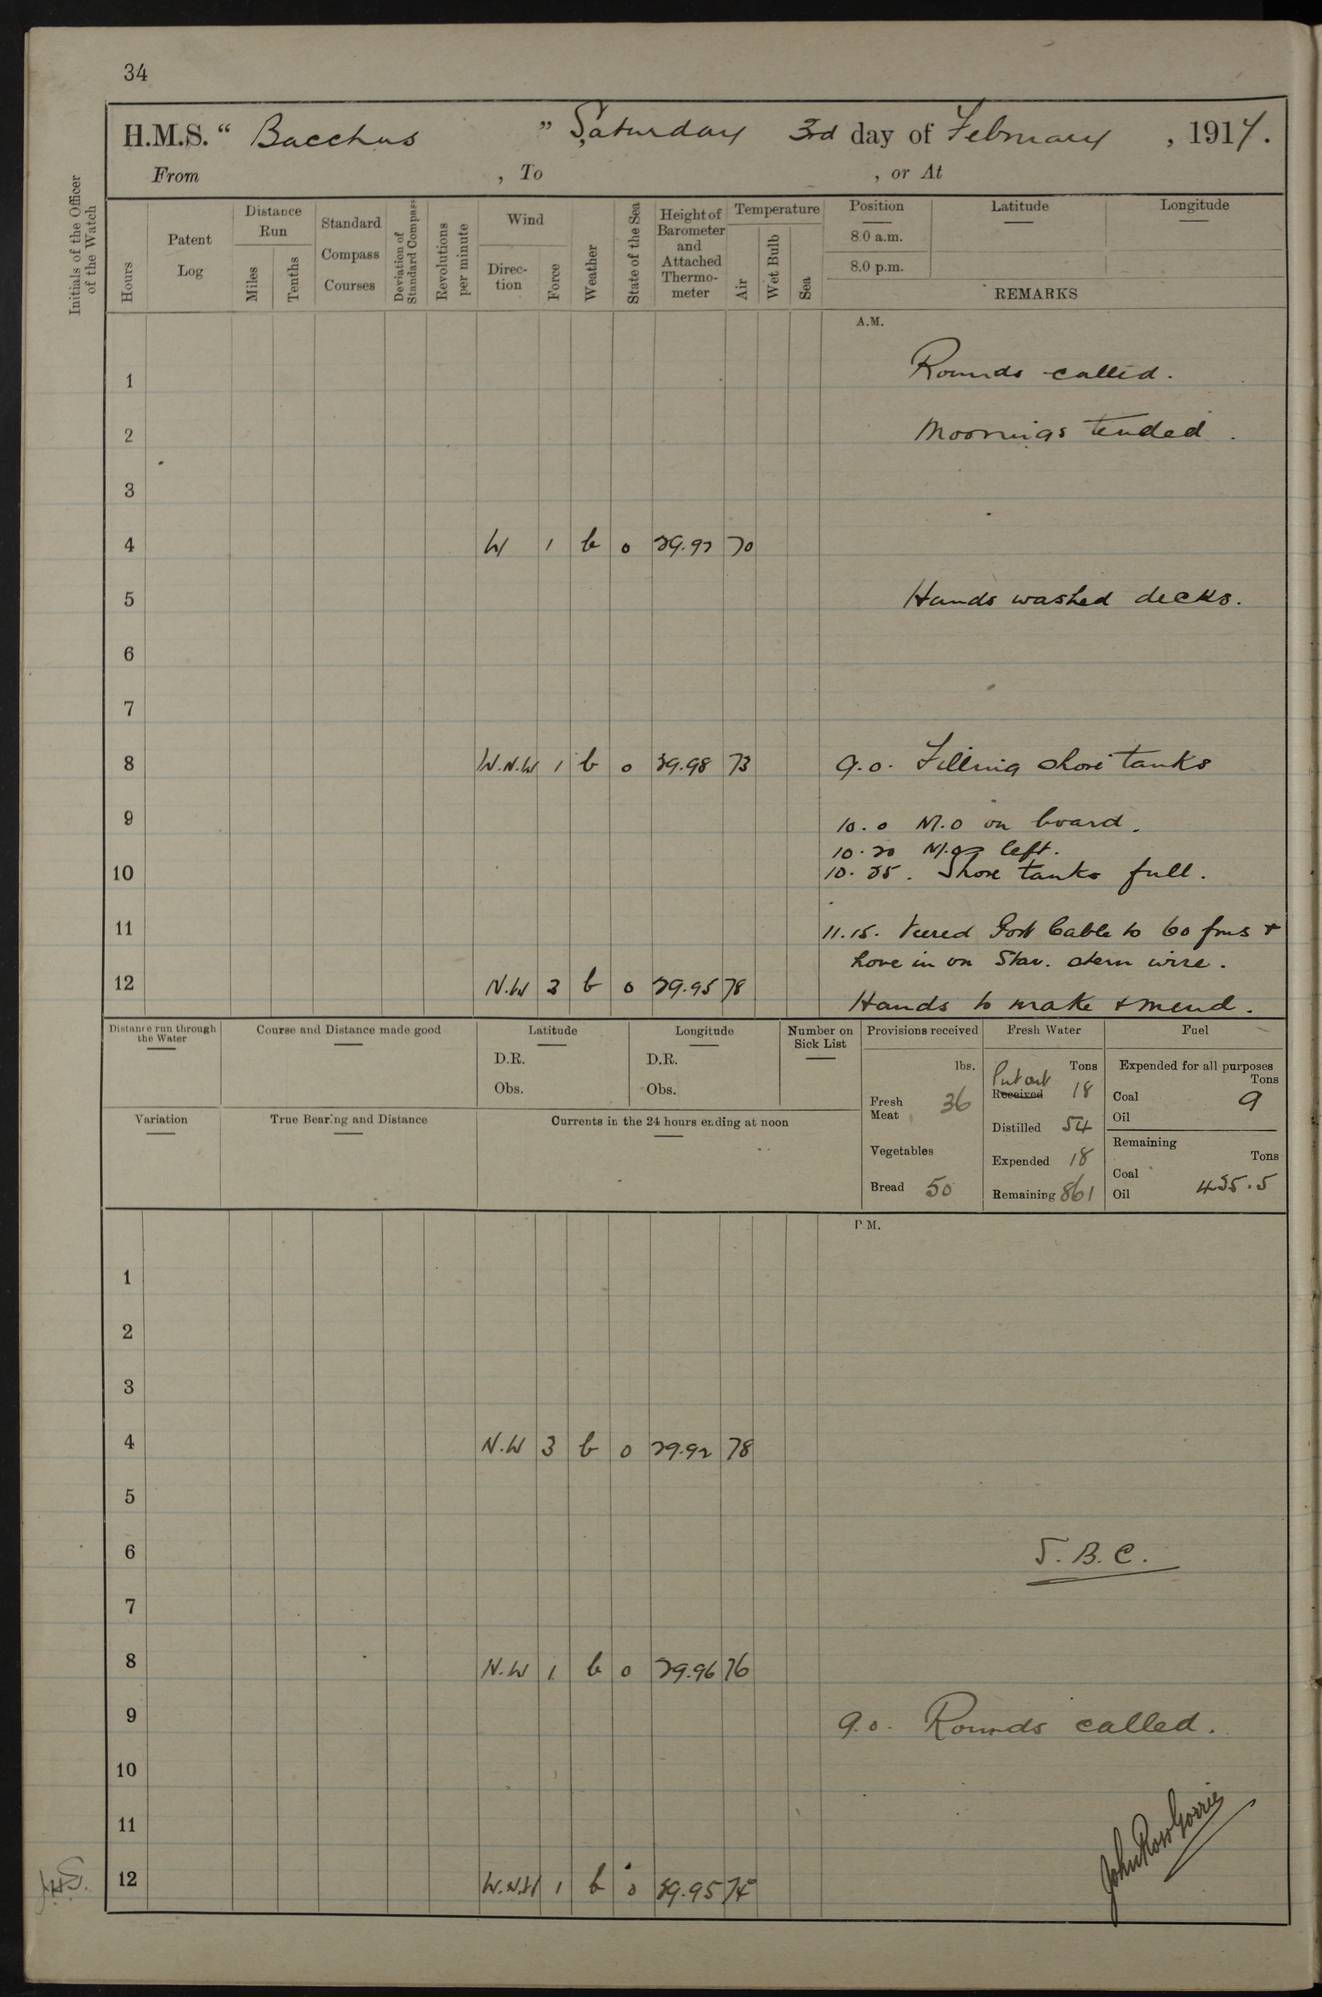 34
H.M.S. “ Bacchus ” Saturday 3rd day of February , 1917.
From , To , or At
Initials of the Officer of the Watch
Hours
Patent Log
Distance Run
Miles
Tenths
Standard Compass Courses
Deviation of Standard Compass
Revolutions per minute
Wind
Direction
Force
Weather
State of the Sea
Height of Barometer and Attached Thermometer
Temperature
Air
Wet Bulb
Sea
Position
8.0 a.m.
8.0 p.m.
Latitude
Longitude
REMARKS
A.M.
1 Rounds called.
2 Moorings tended.
3
4 W 1 b 0 29.92 70
5 Hands washed decks.
6
7
8 W.N.W 1 b 0 29.98 73 9.0. Filling shore tanks
9 10.0 M.O on board.
10.20 M.O left.
10 10.25. Shore tanks full.
11 11.15. Veered Port Cable to 60 fms +
hove in on Star. stern wire.
12 N.W 3 b 0 29.95 78
Hands to make + mend.
Distance run through the Water
Course and Distance made good
Latitude
D.R.
Obs.
Longitude
D.R.
Obs.
Number on Sick List
Provisions received
lbs.
Fresh Meat 36
Vegetables
Bread 50
Fresh Water
Tons
Put out
Received 18
Distilled 54
Expended 18
Remaining 861
Fuel
Expended for all purposes
Tons
Coal 9
Oil
Remaining
Tons
Coal
Oil 435.5
Variation
True Bearing and Distance
Currents in the 24 hours ending at noon
P.M.
1
2
3
4 N.W 3 b 0 29.92 78
5
6 S.B.C.
7
8 N.W 1 b 0 29.96 76
9 9.0. Rounds called.
10
11
John Ross Gorrie
12 W.N.W 1 b 0 29.95 74
J.H.S.